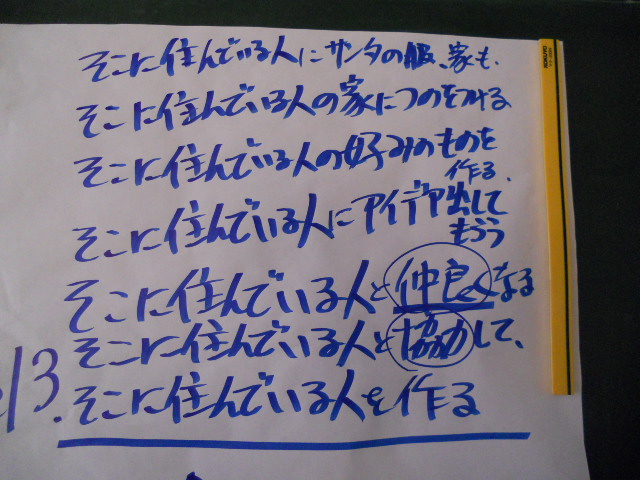 そこに住んでいる人にサンタの服、家も、
そこに住んでいる人の家につのをつける
そこに住んでいる人の好みのものを
作る、
そこに住んでいる人にアイデア出して
もらう
そこに住んでいる人と仲良くなる
そこに住んでいる人と協力して、
13.そこに住んでいる人を作る